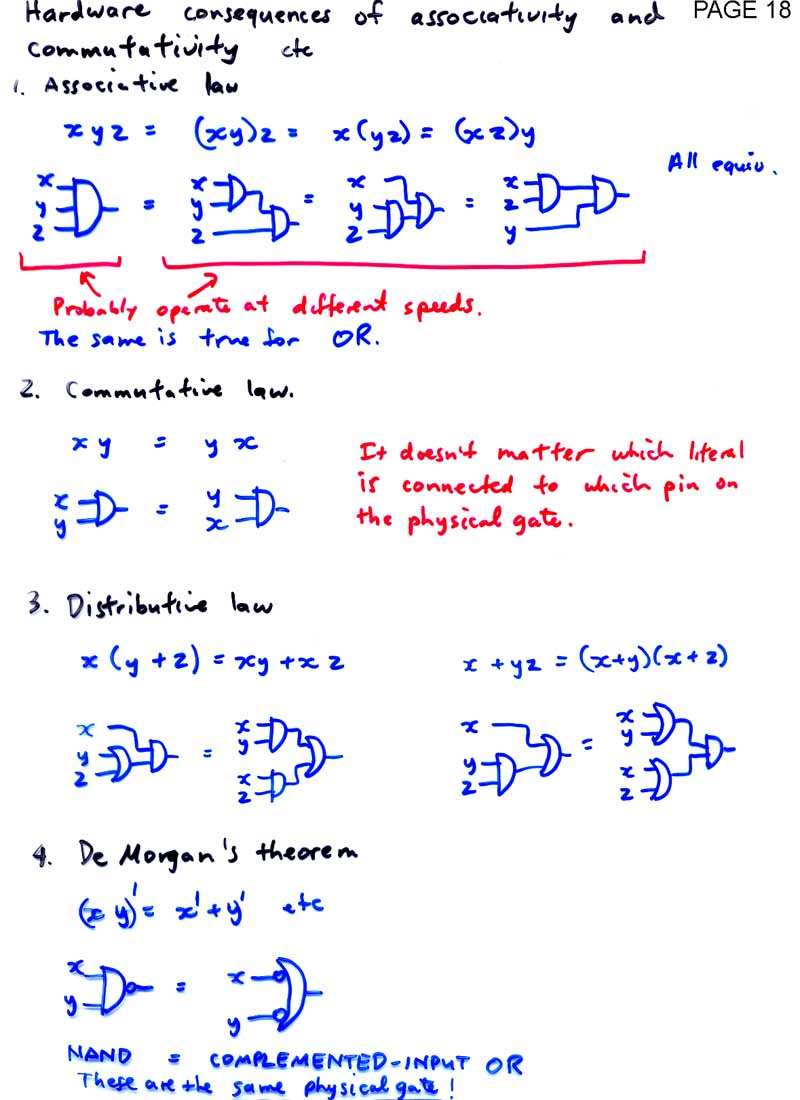 Hardware consequences of associativity and PAGE 18
commutativity etc
1. Associative law
xyz = (xy)z = x(yz) = (xz)y
All equiv.
x x x x
y = y = y = z
z z z y
Probably operate at different speeds.
The same is true for OR.
2. Commutative law.
xy = yx
It doesn't matter which literal
is connected to which pin on
the physical gate.
x = y
y x
3. Distributive law
x(y+z) = xy+xz x+yz = (x+y)(x+z)
x x x x
y = y y = y
z x z x
z z
4. De Morgan's theorem
(xy)' = x'+y' etc
x = x
y y
NAND = COMPLEMENTED-INPUT OR
These are the same physical gate!